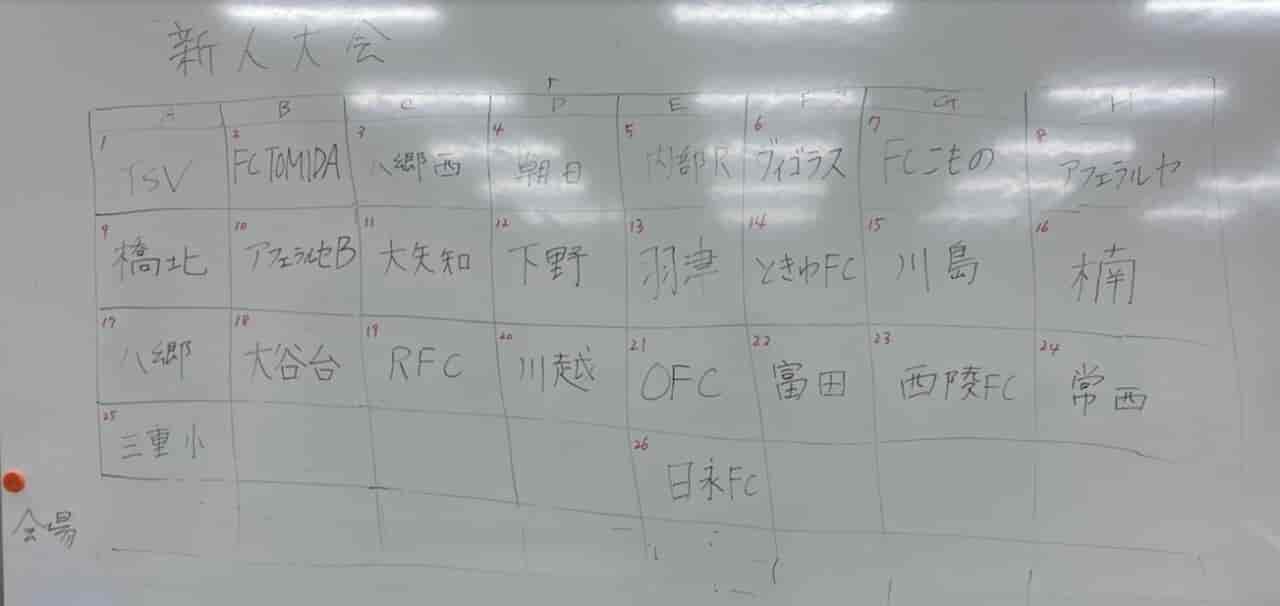 新人大会
A B C D E F G H
1 2 3 4 5 6 7 8
TSV FC TOMIDA 八郷西 朝日 内部R ヴィゴラス FCこもの アフェラルセ
9 10 11 12 13 14 15 16
橋北 アフェラルセB 大矢知 下野 羽津 ときわFC 川島 楠
17 18 19 20 21 22 23 24
八郷 大谷台 RFC 川越 OFC 富田 西陵FC 常西
25 26
三重小 日永FC
会場